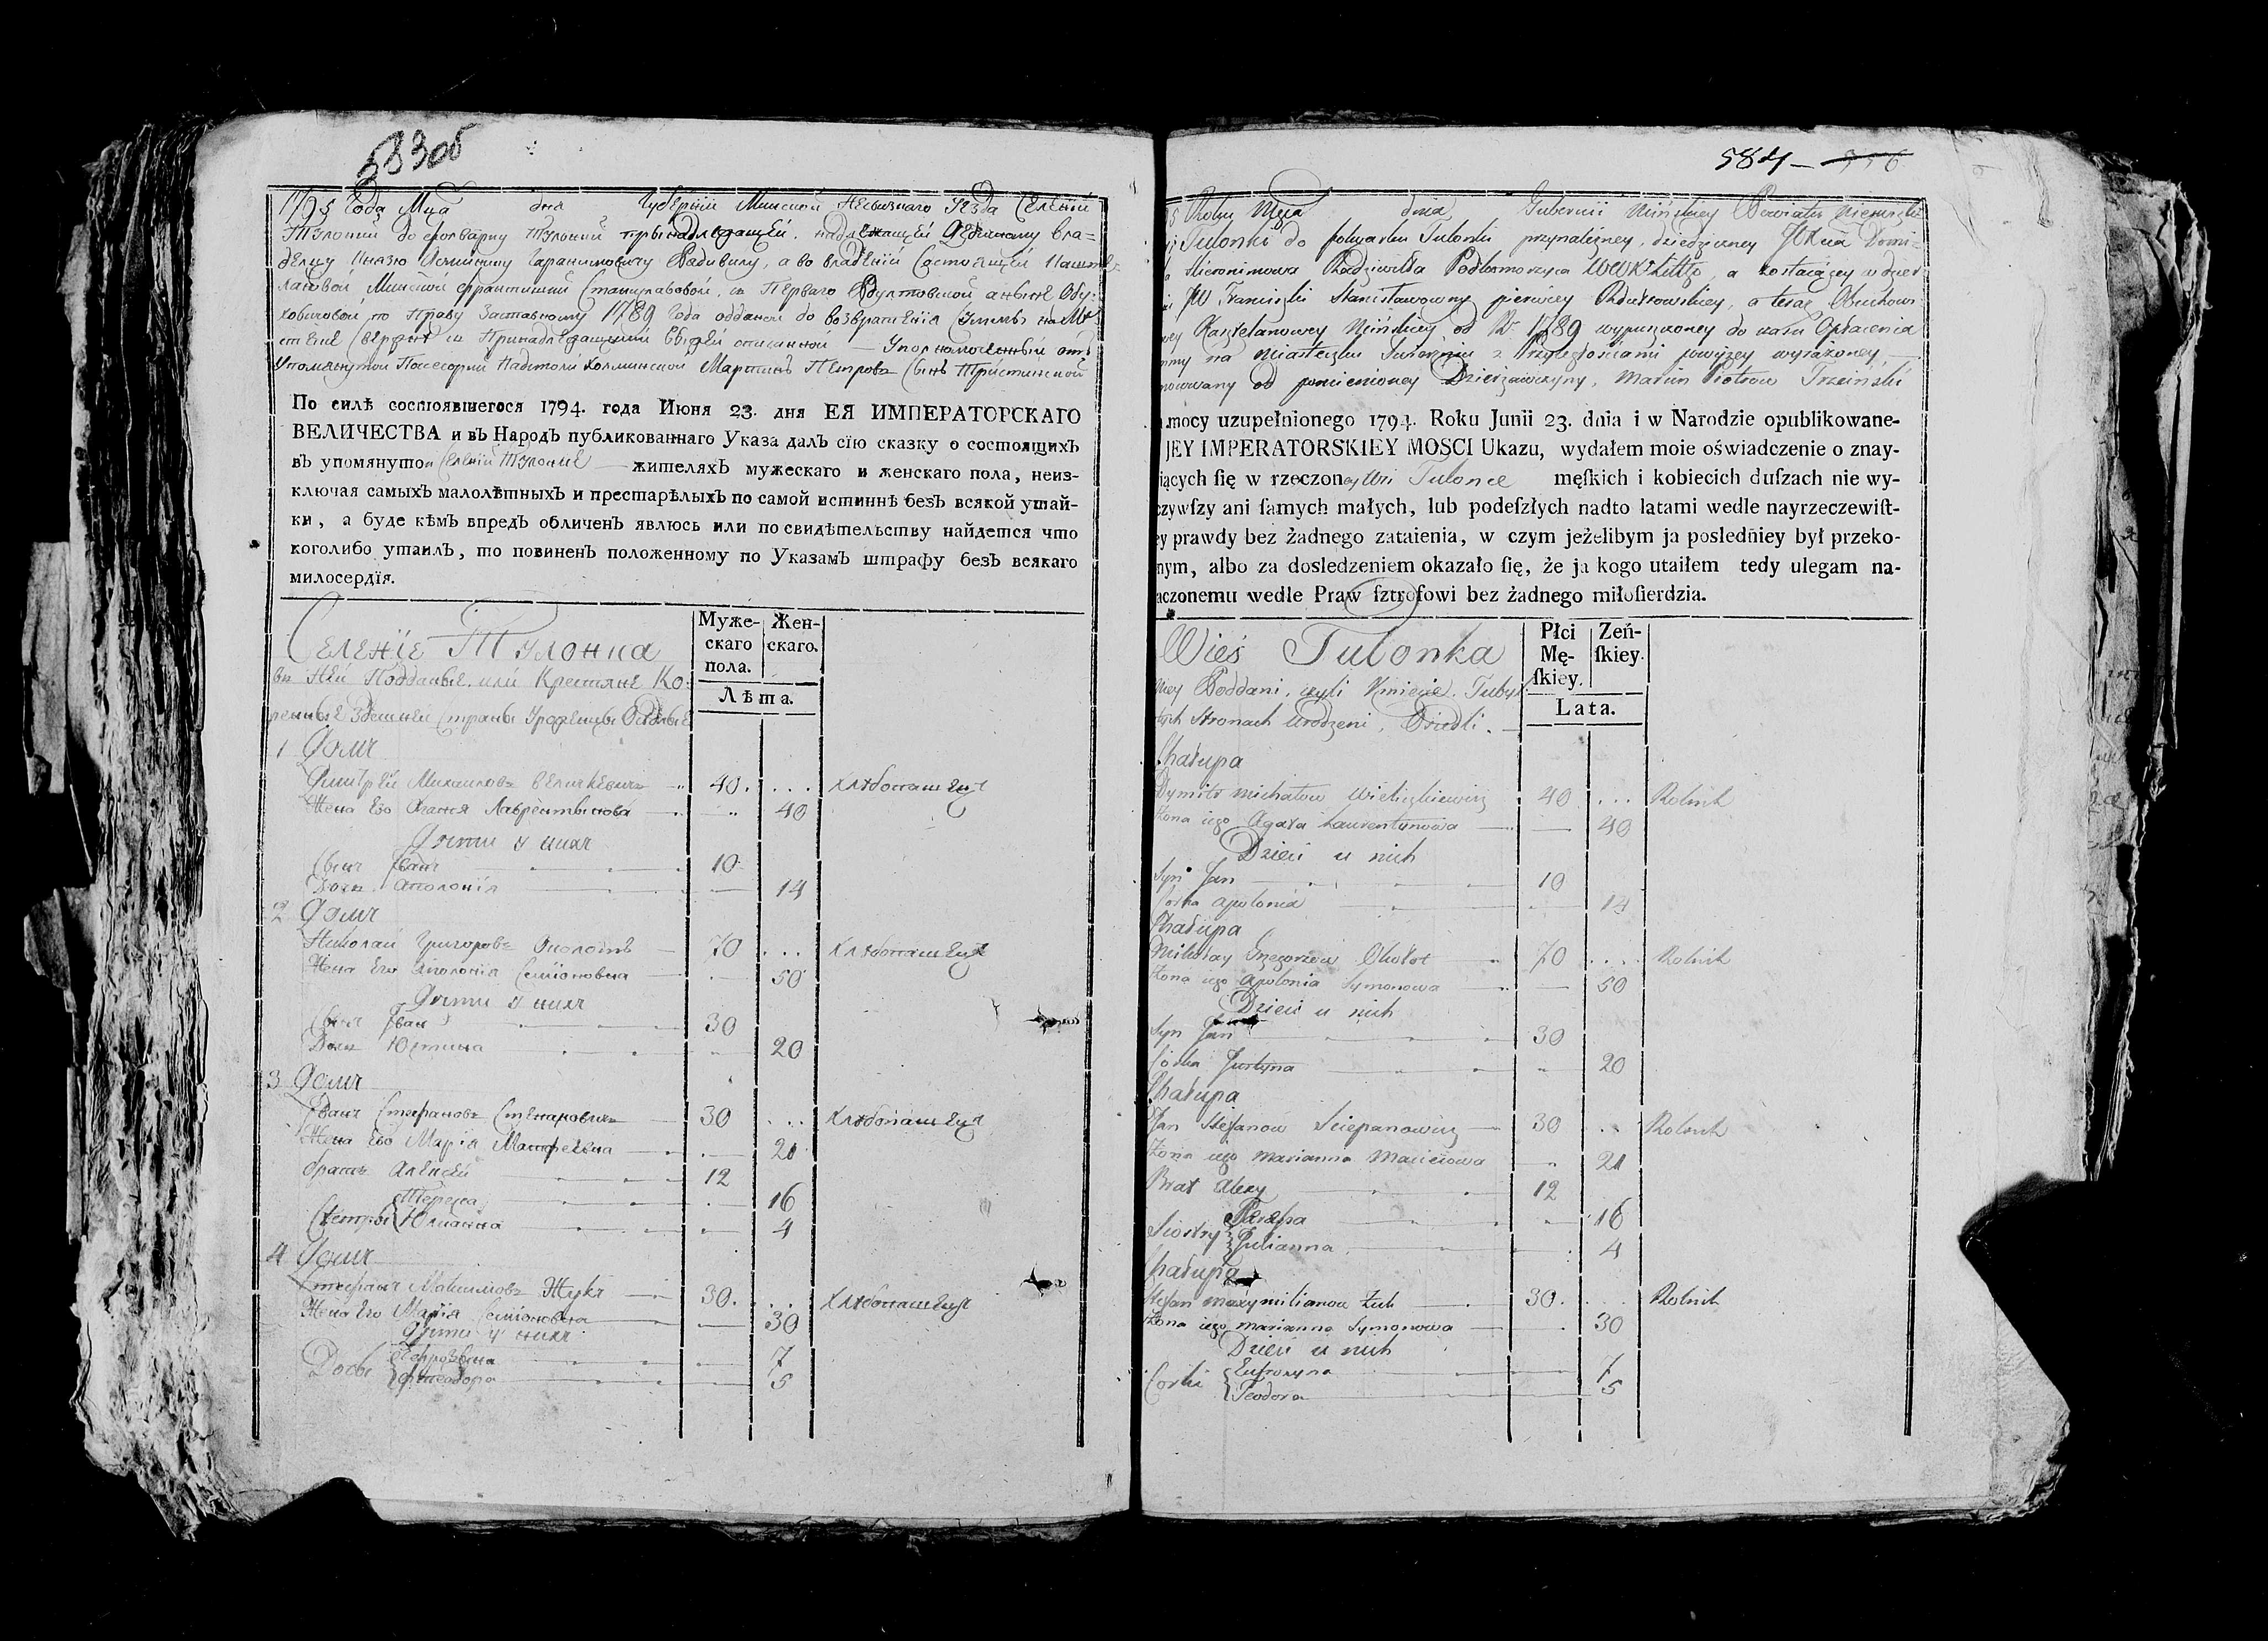 583об
1795 Года Мца дна Губернїи Минской Несвизкаго Уезда Селенїи
Тулонки до фолварку Тулонки принадлежащей, надлежащей Дедичному вла=
делцу Князю Доминику Иаранимовичу Радивилу, а во владенїи Состоящей Каште
ляновой Минской Францишки Станиславовой, съ Перваго Рдултовской а ныне Обу-
ховичовой по Праву Заставному 1789 Года отданой до возвращенїя Суммъ на Ме
стече Сверзне съ Принадлежащими
Упомянутой Посесорки Мартинъ Петровъ Сынъ
По силѣ состоявшегося 1794. года Июня 23. дня ЕЯ ИМПЕРАТОРСКАГО
ВЕЛИЧЕСТВА и въ Народъ публикованнаго Указа далъ сїю сказку о состоящихъ
въ упомянутои Селенїи Тулонке жителяхъ мужескаго и женскаго пола, неиз-
ключая самыхъ малолѣтныхъ и престарѣлыхъ по самой истиннѣ безъ всякой утай-
ки, а буде кѣмъ впредь обличенъ явлюсь или по свидѣтельству найдется что
коголибо утаилъ, то повиненъ положенному по Указамъ штрафу безъ всякаго
милосердїя.
Селенїе Тулонка
въ Ней Подданые или Крестяне Ко-
ренные Здешней Страны Уроженцы Оседлые
Муже-
скаго
пола.
Жен-
скаго.
Лѣта.
1 Домъ
Дмитрей Михаиловъ Величкевичъ 40. ... хлѣбопашецъ
Жена Его Агафя Лаврентынова 40
Дети у нихъ
Сынъ Іванъ 10
Дочь Аполонїя 14
2 Домъ
Николай Григоровъ Околотъ 70 ... хлѣбопашецъ
Жена Его Аполонїя Семїоновна 50
Дети у нихъ
Сынъ Іванъ 30
Дочь Юстина 20
3 Домъ
Іванъ Стефановъ Степановичъ 30 ... хлѣбопашецъ
Жена Его Марїя Матфеевна 21
братъ Алексей 12
Сестры Тереса 16
Юлианна 4
4 Домъ
Стефанъ Максимовъ Жукъ 30. ... хлѣбопашецъ
Жена Его Марїя Семїоновна 30
Дети у нихъ
Дочы Ефрозына 7
Фтеодора 5
584 — 556
5 Roku Mca dnia Gubernii Minskiey Powiatu Nieswizki
Tulonki do folwarku Tulonki przynależney, dziedziczney JO Xcia Domi-
Hieronimowa Radziwiłła Podkomorzyca WWXLittgo, a zostaiącey w dzier
JW Franciszki Stanisławowny pierwiey Rdułtowskiey, a teraz Obuchowi
Kasztelanowey Minskiey od Rku 1789 wypuszczoney do czasu Opłacenia
summy na Miasteczku Swierzniu z Przyległościami powyżey wyrażoney,
mocowany od pomienioney Dzierżawczyny, Marcin Piotrow Trzciński
mocy uzupełnionego 1794. Roku Junii 23. dnia i w Narodzie opublikowane-
JEY IMPERATORSKIEY MOSCI Ukazu, wydałem moie oświadczenie o znay-
iących ſię w rzeczoney Wsi Tulonce męſkich i kobiecich duſzach nie wy-
czywſzy ani ſamych małych, lub podeſzłych nadto latami wedle nayrzeczewiſt-
ey prawdy bez żadnego zataienia, w czym jeżelibym ja posledniey był przeko-
nym, albo za dosledzeniem okazało ſię, że ja kogo utaiłem tedy ulegam na-
aczonemu wedle Praw ſztrofowi bez żadnego miłoſierdzia.
Wieś Tulonka
niey Poddani, czyli Kmiecie. Tubyl
tych Stronach Urodzeni, Osiedli.
Płci
Mę-
ſkiey.
Zeń-
ſkiey.
Lata.
Chałupa
Dymitr Michałow Wieliczkiewicz 40 ... Rolnik
Zona iego Agata Laurentynowa 40
Dzieci u nich
Syn Jan 10
Corka Apolonia 14
Chałupa
Mikołay Grzegorzow Okołot 70 .... Rolnik
Zona iego Apolonia Symonowa 50
Dzieci u nich
Syn Jan 30
Córka Justyna 20
Chałupa
Jan Stefanow Sciepanowicz 30 .. Rolnik
Zona iego Marianna Macieiowa 21
Brat Alexy 12
Siostry Teressa 16
Julianna 4
Chałupa
Stefan Maxymilianow Żuk 30. .. Rolnik
Zona iego Marianna Symonowa 30
Dzieci u nich
Corki Eufrozyna 7
Teodora 5